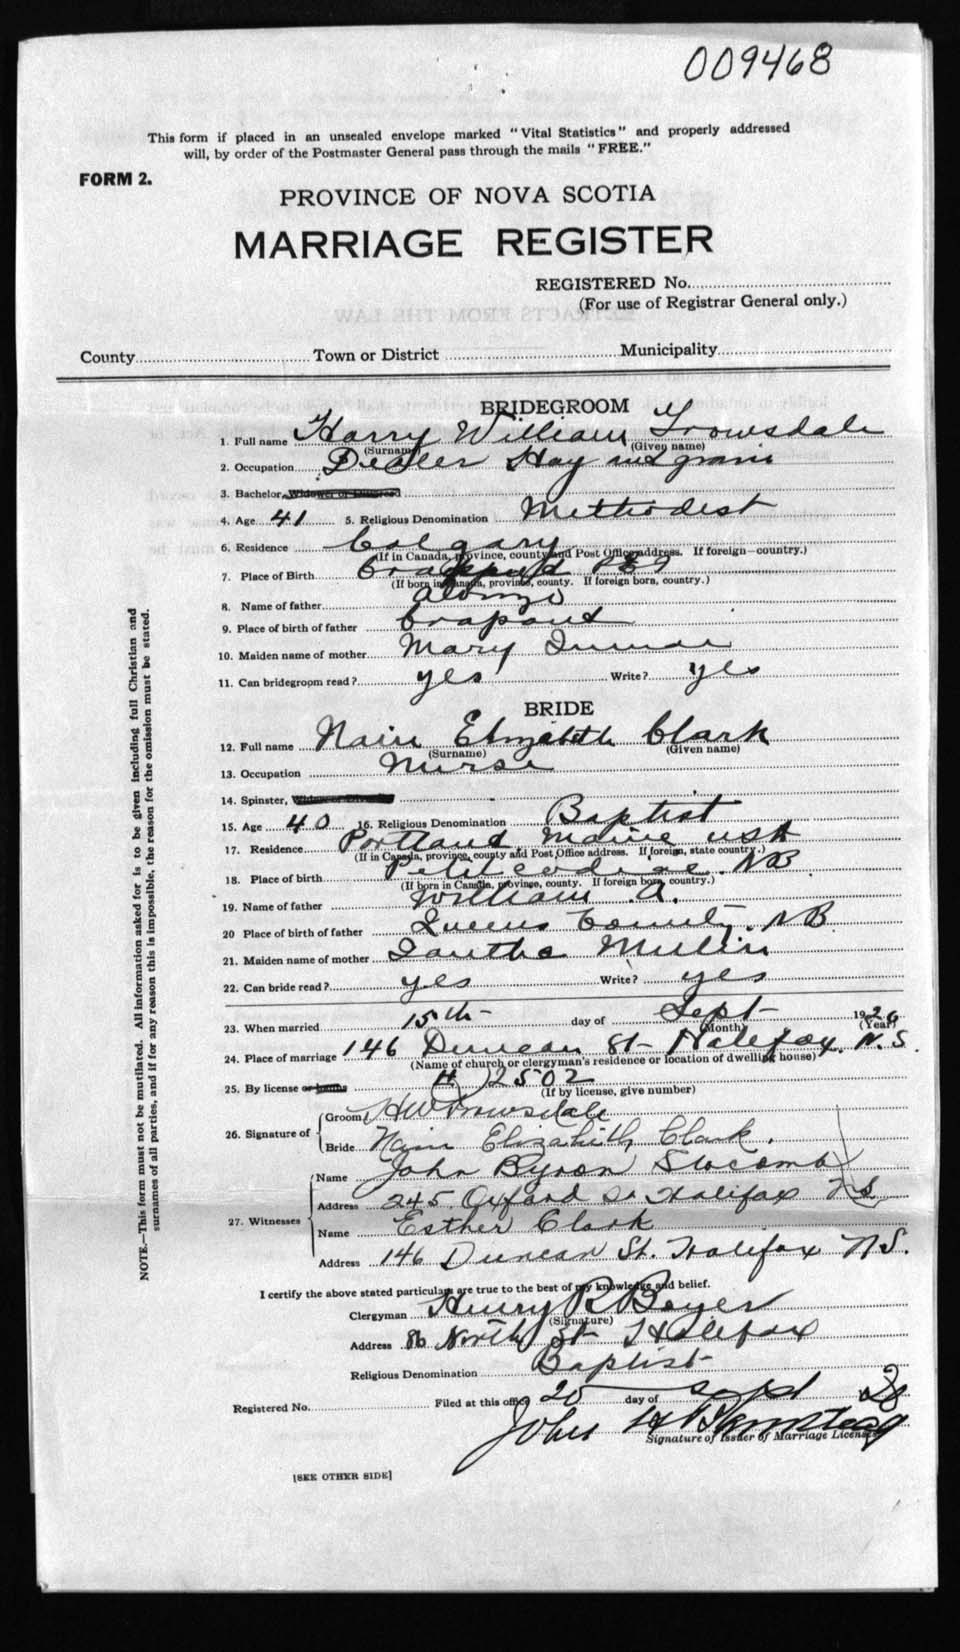 009468
This form if placed in an unsealed envelope marked "Vital Statistics" and properly addressed
will, by order of the Postmaster General pass through the mails "FREE."
FORM 2.
PROVINCE OF NOVA SCOTIA
MARRIAGE REGISTER
REGISTERED No.
(For use of Registrar General only.)
County Town or District Municipality
BRIDEGROOM
1. Full name Harry William Trowsdale
(Surname) (Given name)
2. Occupation Dealer Hay and grain
3. Bachelor, Widower or Divorced
4. Age 41 5. Religious Denomination Methodist
6. Residence Calgary
(If in Canada, province, county and Post Office address. If foreign—country.)
7. Place of Birth Crapaud PEI
(If born in Canada, province, county. If foreign born, country.)
8. Name of father Alonzo
9. Place of birth of father Crapaud
10. Maiden name of mother Mary
11. Can bridegroom read? yes Write? yes
BRIDE
12. Full name Naiu Elizabeth Clark
(Surname) (Given name)
13. Occupation Nurse
14. Spinster,
15. Age 40 16. Religious Denomination Baptist
17. Residence Portland Maine USA
(If in Canada, province, county and Post Office address. If foreign, state country.)
18. Place of birth Petitcodiac NB
(If born in Canada, province, county. If foreign born, country.)
19. Name of father William A.
20 Place of birth of father Queens County, NB
21. Maiden name of mother Iantha Mullin
22. Can bride read? yes Write? yes
23. When married 15th day of Sept 1926
(Month) (Year)
24. Place of marriage 146 Duncan St Halifax, N.S.
(Name of church or clergyman's residence or location of dwelling house)
25. By license or banns H 2502
(If by license, give number)
26. Signature of
Groom HW Trowsdale
Bride Naiu Elizabeth Clark.
27. Witnesses
Name John Byron Slocomb
Address 245 Oxford St Halifax NS
Name Esther Clark
Address 146 Duncan St. Halifax N.S.
I certify the above stated particulars are true to the best of my knowledge and belief.
Clergyman Henry R Boyer
(Signature)
Address 86 North St Halifax
Religious Denomination Baptist
Registered No. Filed at this office 20 day of Sept 26
John H
Signature of Issuer of Marriage Licenses
[SEE OTHER SIDE]
NOTE.—This form must not be mutilated. All information asked for is to be given including full Christian and
surnames of all parties, and if for any reason this is impossible, the reason for the omission must be stated.